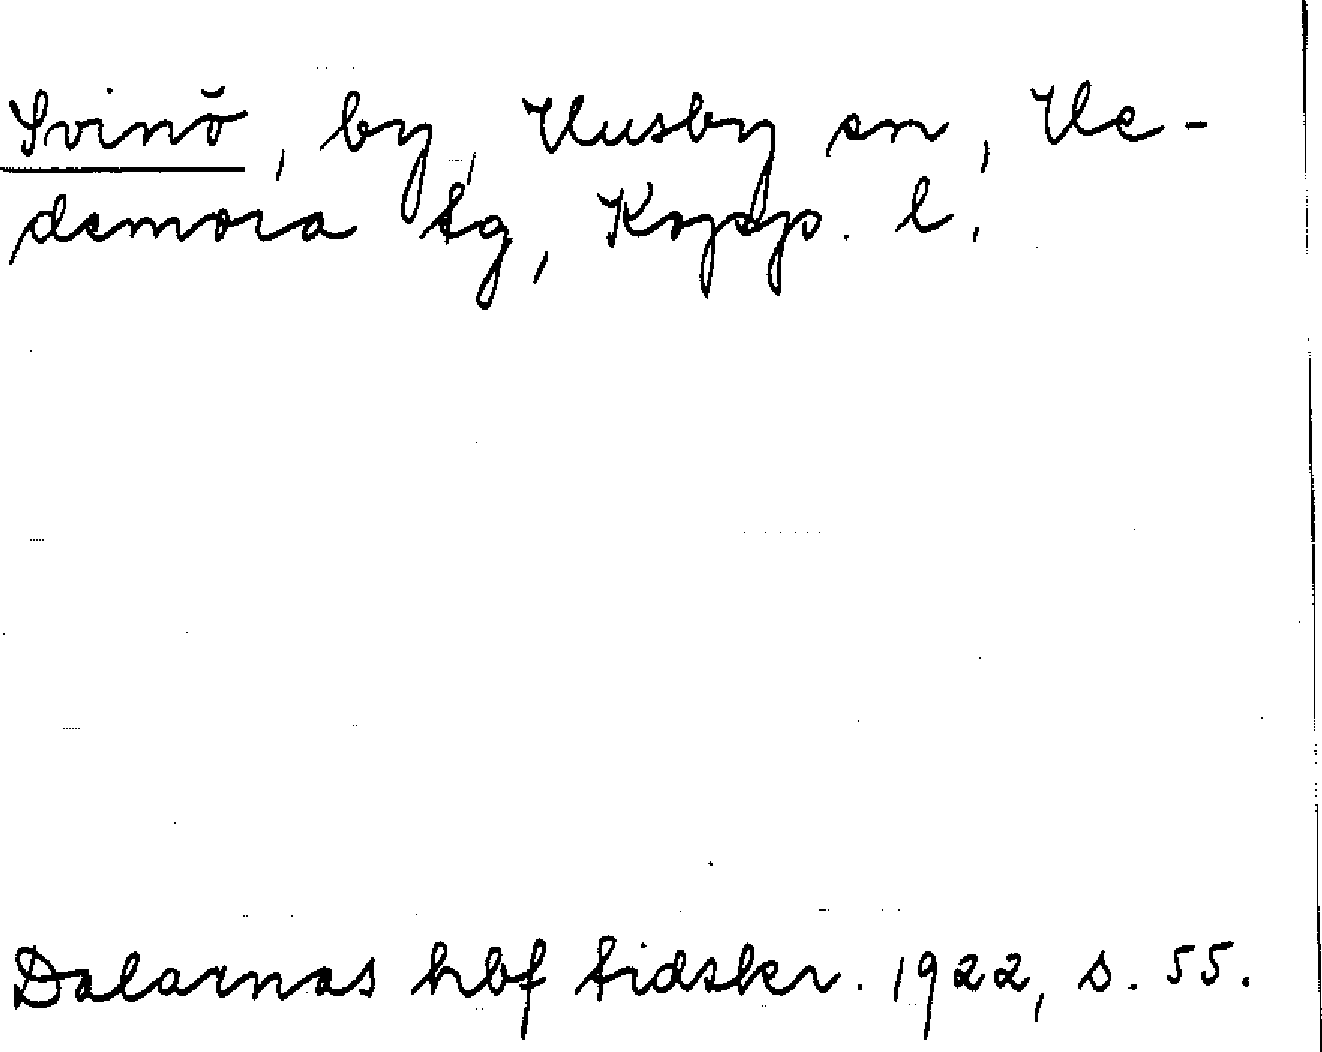 Svinö, by, Husby sn, He-
demora tg, Kopp. l.
Dalarnas hbf tidskr. 1922, s. 55.